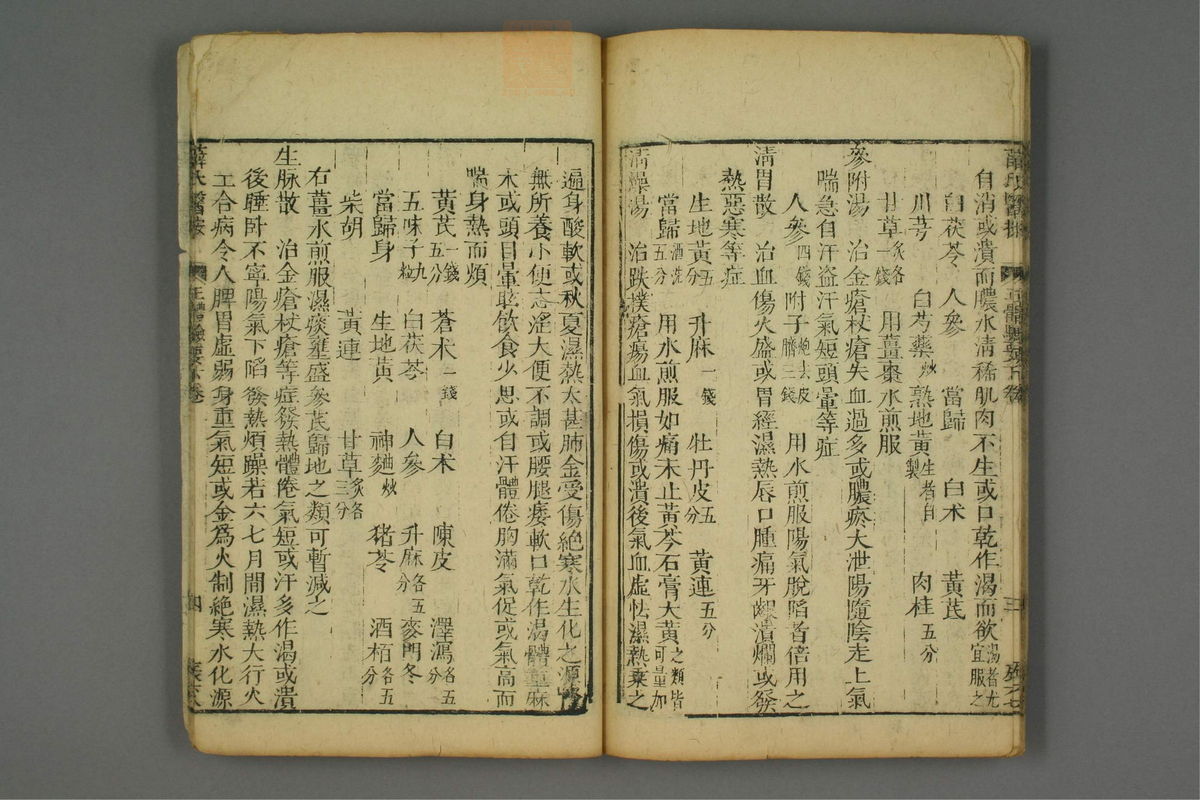 薛氏醫按 正體類要下卷 三
自消或潰而膿水清稀肌肉不生或口乾作渴而欲湯者尤宜服之
白茯苓 人參 當歸 白朮 黃芪
川芎 白芍藥炒 熟地黃生者自製 肉桂五分
甘草炙各一錢 用薑棗水煎服
參附湯 治金瘡杖瘡失血過多或膿瘀大泄陽隨陰走上氣
喘急自汗盜汗氣短頭暈等症
人參四錢 附子炮去皮臍三錢 用水煎服陽氣脫陷者倍用之
清胃散 治血傷火盛或胃經濕熱唇口腫痛牙齦潰爛或發
熱惡寒等症
生地黃五分 升麻一錢 牡丹皮五分 黃連五分
當歸酒洗五分 用水煎服如痛未止黃芩石膏大黃之類皆可量加
清燥湯 治跌撲瘡瘍血氣損傷或潰後氣血虛怯濕熱乗之
遍身酸軟或秋夏濕熱太甚肺金受傷絕寒水生化之源
無所養小便赤澁大便不調或腰腿痿軟口乾作渴體重麻
木或頭目暈眩飲食少思或自汗體倦胸滿氣促或氣高而
喘身熱而煩
黃芪一錢五分 蒼朮一錢 白朮 陳皮 澤瀉各五分
五味子九粒 白茯苓 人參 升麻各五分 麥門冬
當歸身 生地黃 神麯炒 猪苓 酒栢各五分
柴胡 黃連 甘草炙各三分
右薑水煎服濕痰壅盛參芪歸地之類可暫減之
生脉散 治金瘡杖瘡等症發熱體倦氣短或汗多作渴或潰
後睡卧不寧陽氣下陷發熱煩躁若六七月間濕熱大行火
工合病令人脾胃虛弱身重氣短或金為火制絕寒水化源
薛氏醫按 正體類要下卷 四